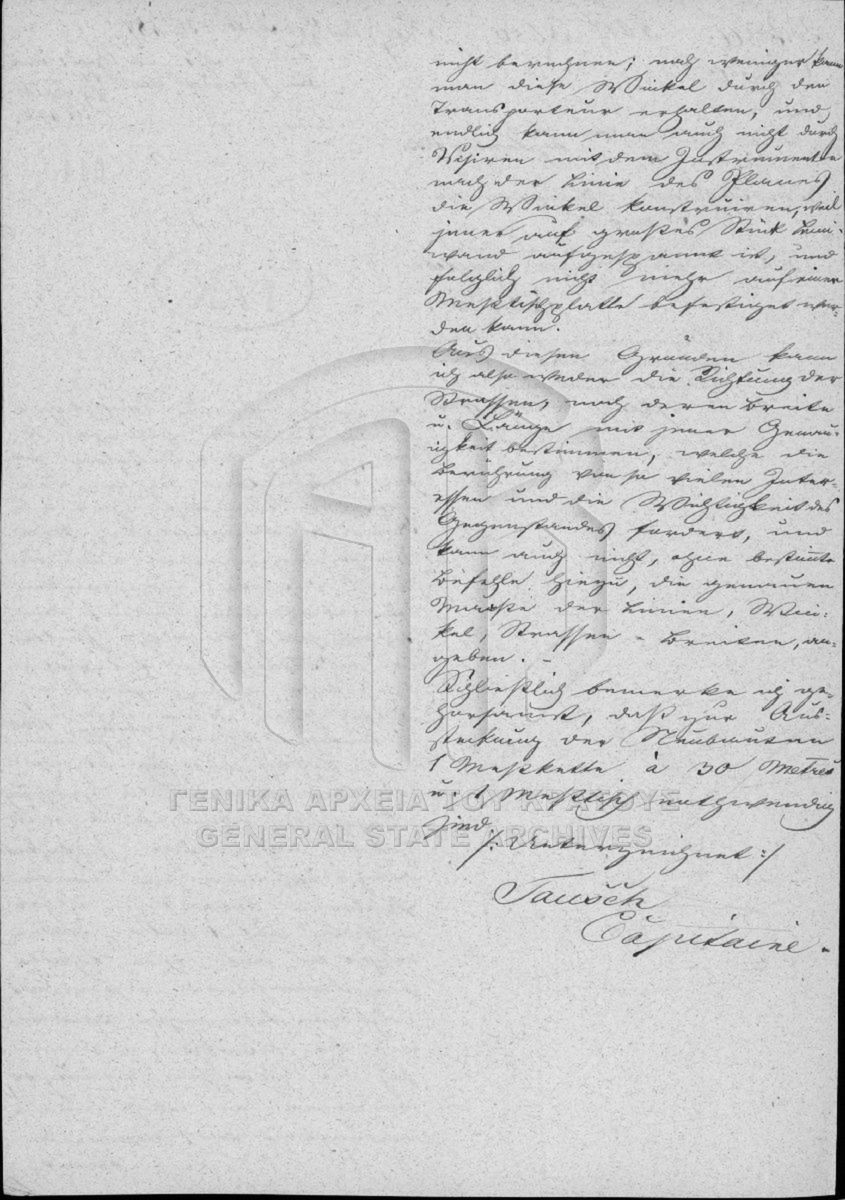 nicht berechnen; noch weniger kann
man diese Winkel durch den
Transporteur erhalten, und
endlich kann man auch nicht durch
Visiren mit dem Instrumente
nach der Linie des Planes
die Winkel konstruiren, weil
jener auf großes Stück Lein-
wand aufgespannt ist, und
folglich nicht mehr auf einer
Meßtischplatte befestiget wer-
den kann.
Aus diesen Gründen kann
ich also weder die Richtung der
Strassen, noch deren Breite
u. Länge mit jener Genau-
igkeit bestimmen, welche die
Berührung von so vielen Inter-
essen und die Wichtigkeit des
Gegenstandes fordert, und
kann auch nicht, ohne bestimte
Befehle hiezu, die genauen
Maaße der Linien, Win-
kel, Strassen - Breiten, an-
geben. -
Schließlich bemerke ich ge-
horsamst, daß zur Aus-
steckung der Neubauten
1 Meßkette à 30 Metres
u. 1 Meßtisch nothwendig
sind.
/: Unterzeichnet :/
Tausch
Capitaine.
ΓΕΝΙΚΑ ΑΡΧΕΙΑ ΤΟΥ ΚΡΑΤΟΥΣ
GENERAL STATE ARCHIVES